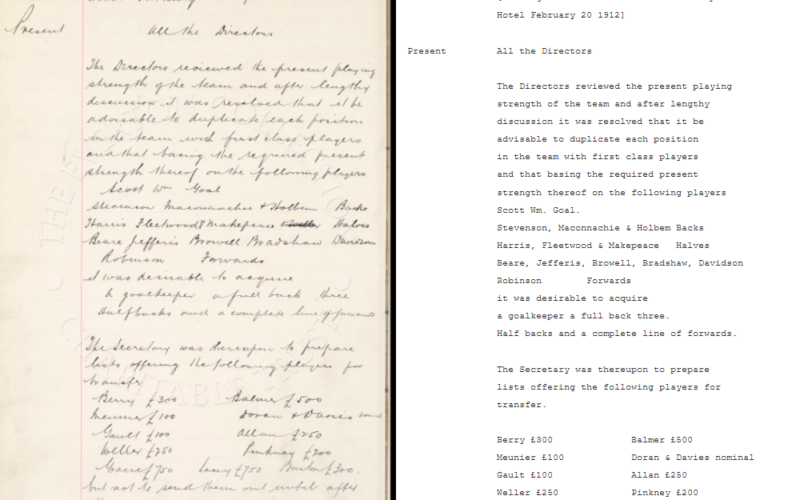 Present
All the Directors
The Directors reviewed the present playing
strength of the team and after lengthy
discussion it was resolved that it be
advisable to duplicate each position
in the team with first class players
and that basing the required present
strength thereof on the following players
Scott Wm Goal
Stevenson Maconnachie & Holbem Backs
Harris Fleetwood & Makepeace Weller Halves
Beare Jefferis Browell Bradshaw Davidson
Robinson Forwards
it was desirable to acquire
a goalkeeper a full back three
Halfbacks and a complete line of forwards
The Secretary was thereupon to prepare
lists offering the following players for
transfer
Berry £300 Balmer £500
Meunier £100 Doran & Davies
Gault £100 Allan £250
Weller £250 Pinkney £200
Gourlay £750 Lacey £750 £300.
but not to send them out until after
Hotel February 20 1912]
Present All the Directors
The Directors reviewed the present playing
strength of the team and after lengthy
discussion it was resolved that it be
advisable to duplicate each position
in the team with first class players
and that basing the required present
strength thereof on the following players
Scott Wm. Goal.
Stevenson, Maconnachie & Holbem Backs
Harris, Fleetwood & Makepeace Halves
Beare, Jefferis, Browell, Bradshaw, Davidson
Robinson Forwards
it was desirable to acquire
a goalkeeper a full back three.
Half backs and a complete line of forwards.
The Secretary was thereupon to prepare
lists offering the following players for
transfer.
Berry £300 Balmer £500
Meunier £100 Doran & Davies nominal
Gault £100 Allan £250
Weller £250 Pinkney £200